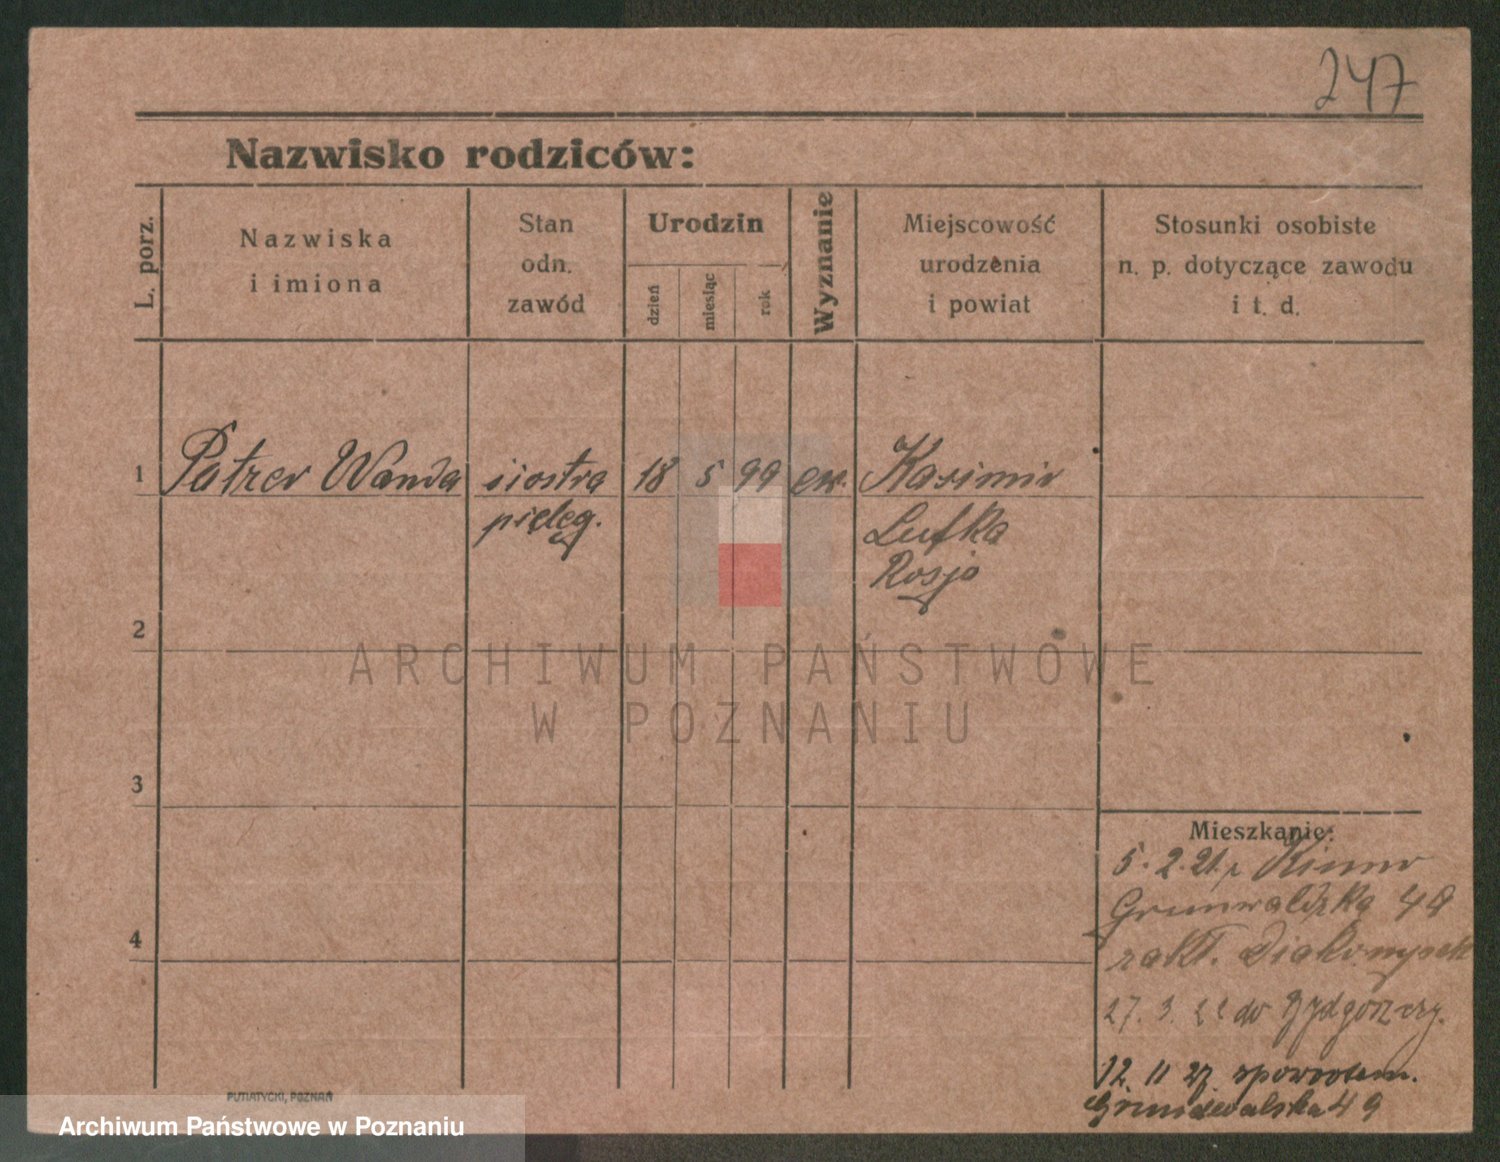 247
Nazwisko rodziców:
L. porz.
Nazwiska
i imiona
Stan
odn.
zawód
Urodzin
dzień
miesiąc
rok
Wyznanie
Miejscowość
urodzenia
i powiat
Stosunki osobiste
n. p. dotyczące zawodu
i t. d.
1 Patzer Wanda siostra 18 5 99 ew. Kasimir
pielęg. Lutka
Rosja
2
ARCHIWUM PAŃSTWOWE
W POZNANIU
3
Mieszkanie:
5. 2. 21.
Grunwaldzka 49
zakł. Diakonysek
4
27. 3. 22 do Bydgoszczy.
12. 11 27 spowrotem.
Grundwalska 49
PUTIATYCKI, POZNAŃ
Archiwum Państwowe w Poznaniu